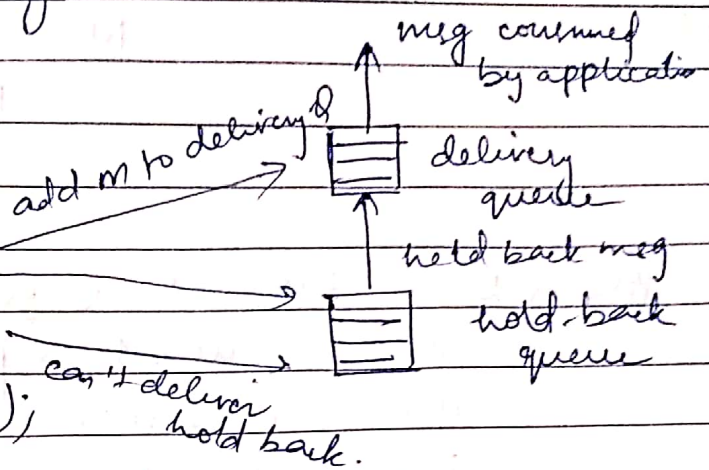 msg consumed
by applicatio
add m to delivery Q
delivery
queue
held back msg
hold-back
queue
can't deliver
hold back.
);